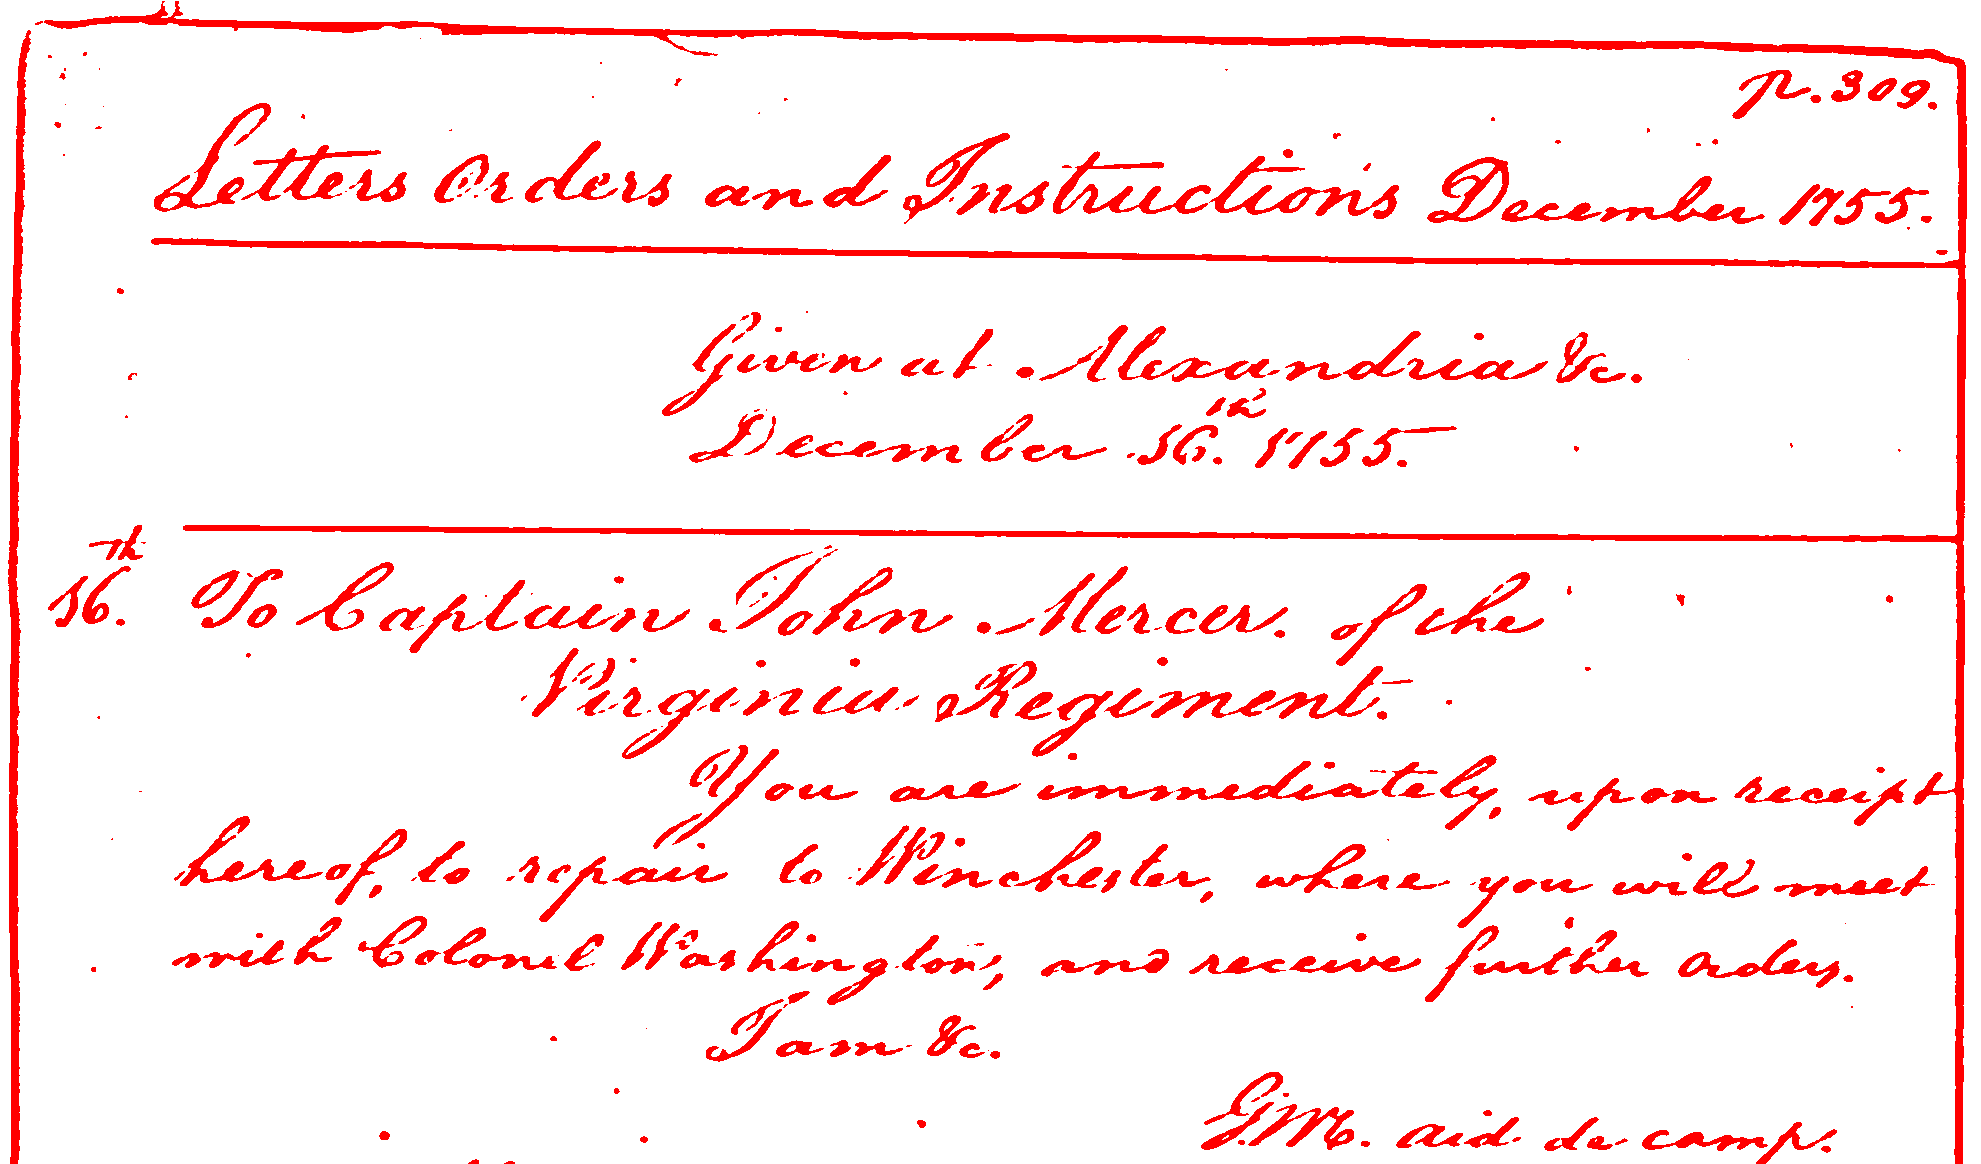 p. 309.
Letters Orders and Instructions December 1755.
Given at Alexandria &c.
December 16th. 1755.
16th. To Captain John Mercer. of the
Virginia Regiment.
You are immediately, upon receipt
hereof, to repair to Winchester, where you will meet
with Colonel Washington, and receive further orders.
I am &c.
G.M. aid de camp.